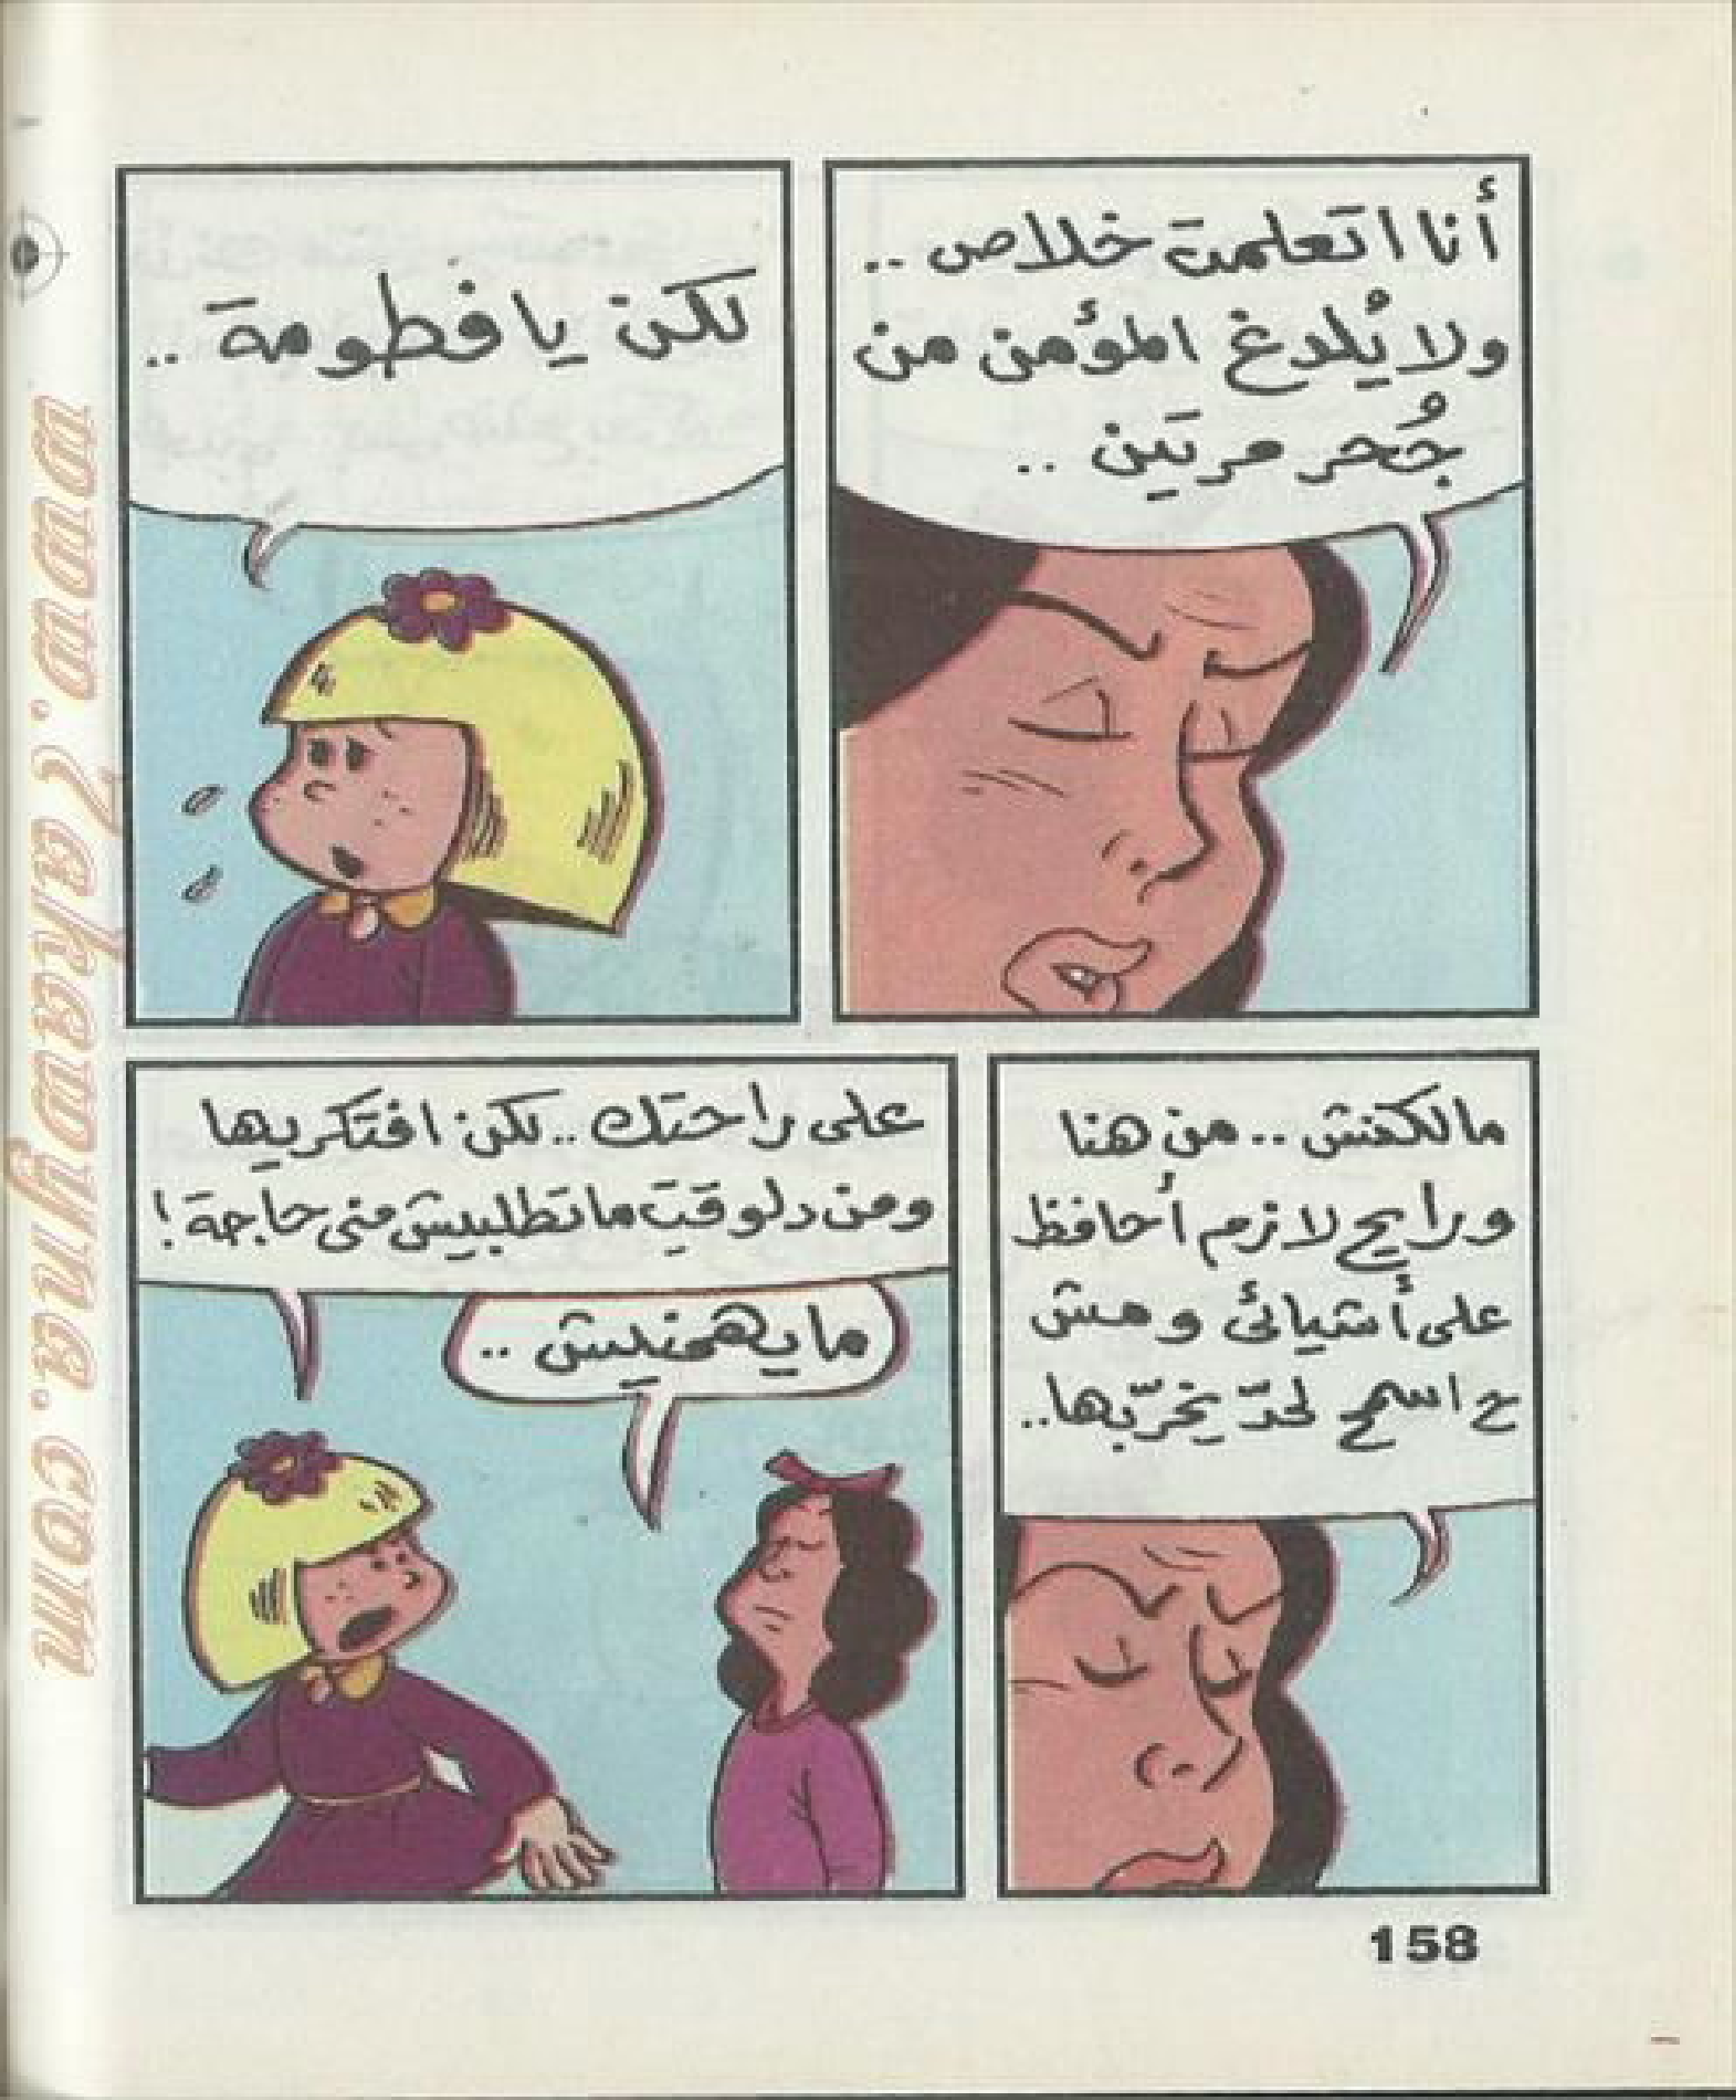 أنا اتعلمت خلاص ..
ولا يُلدغ المؤمن من
جُحر مرتين ..
لكن يا فطومة ..
مالكنش .. من هنا
ورايح لازم أحافظ
على أشيائى ومش
ح اسمح لحدّ يخرّبها..
على راحتك .. لكن افتكريها
ومن دلوقتِ ما تطلبيش منى حاجة !
ما يهمنيش ..
158
www.2ahawyna.com